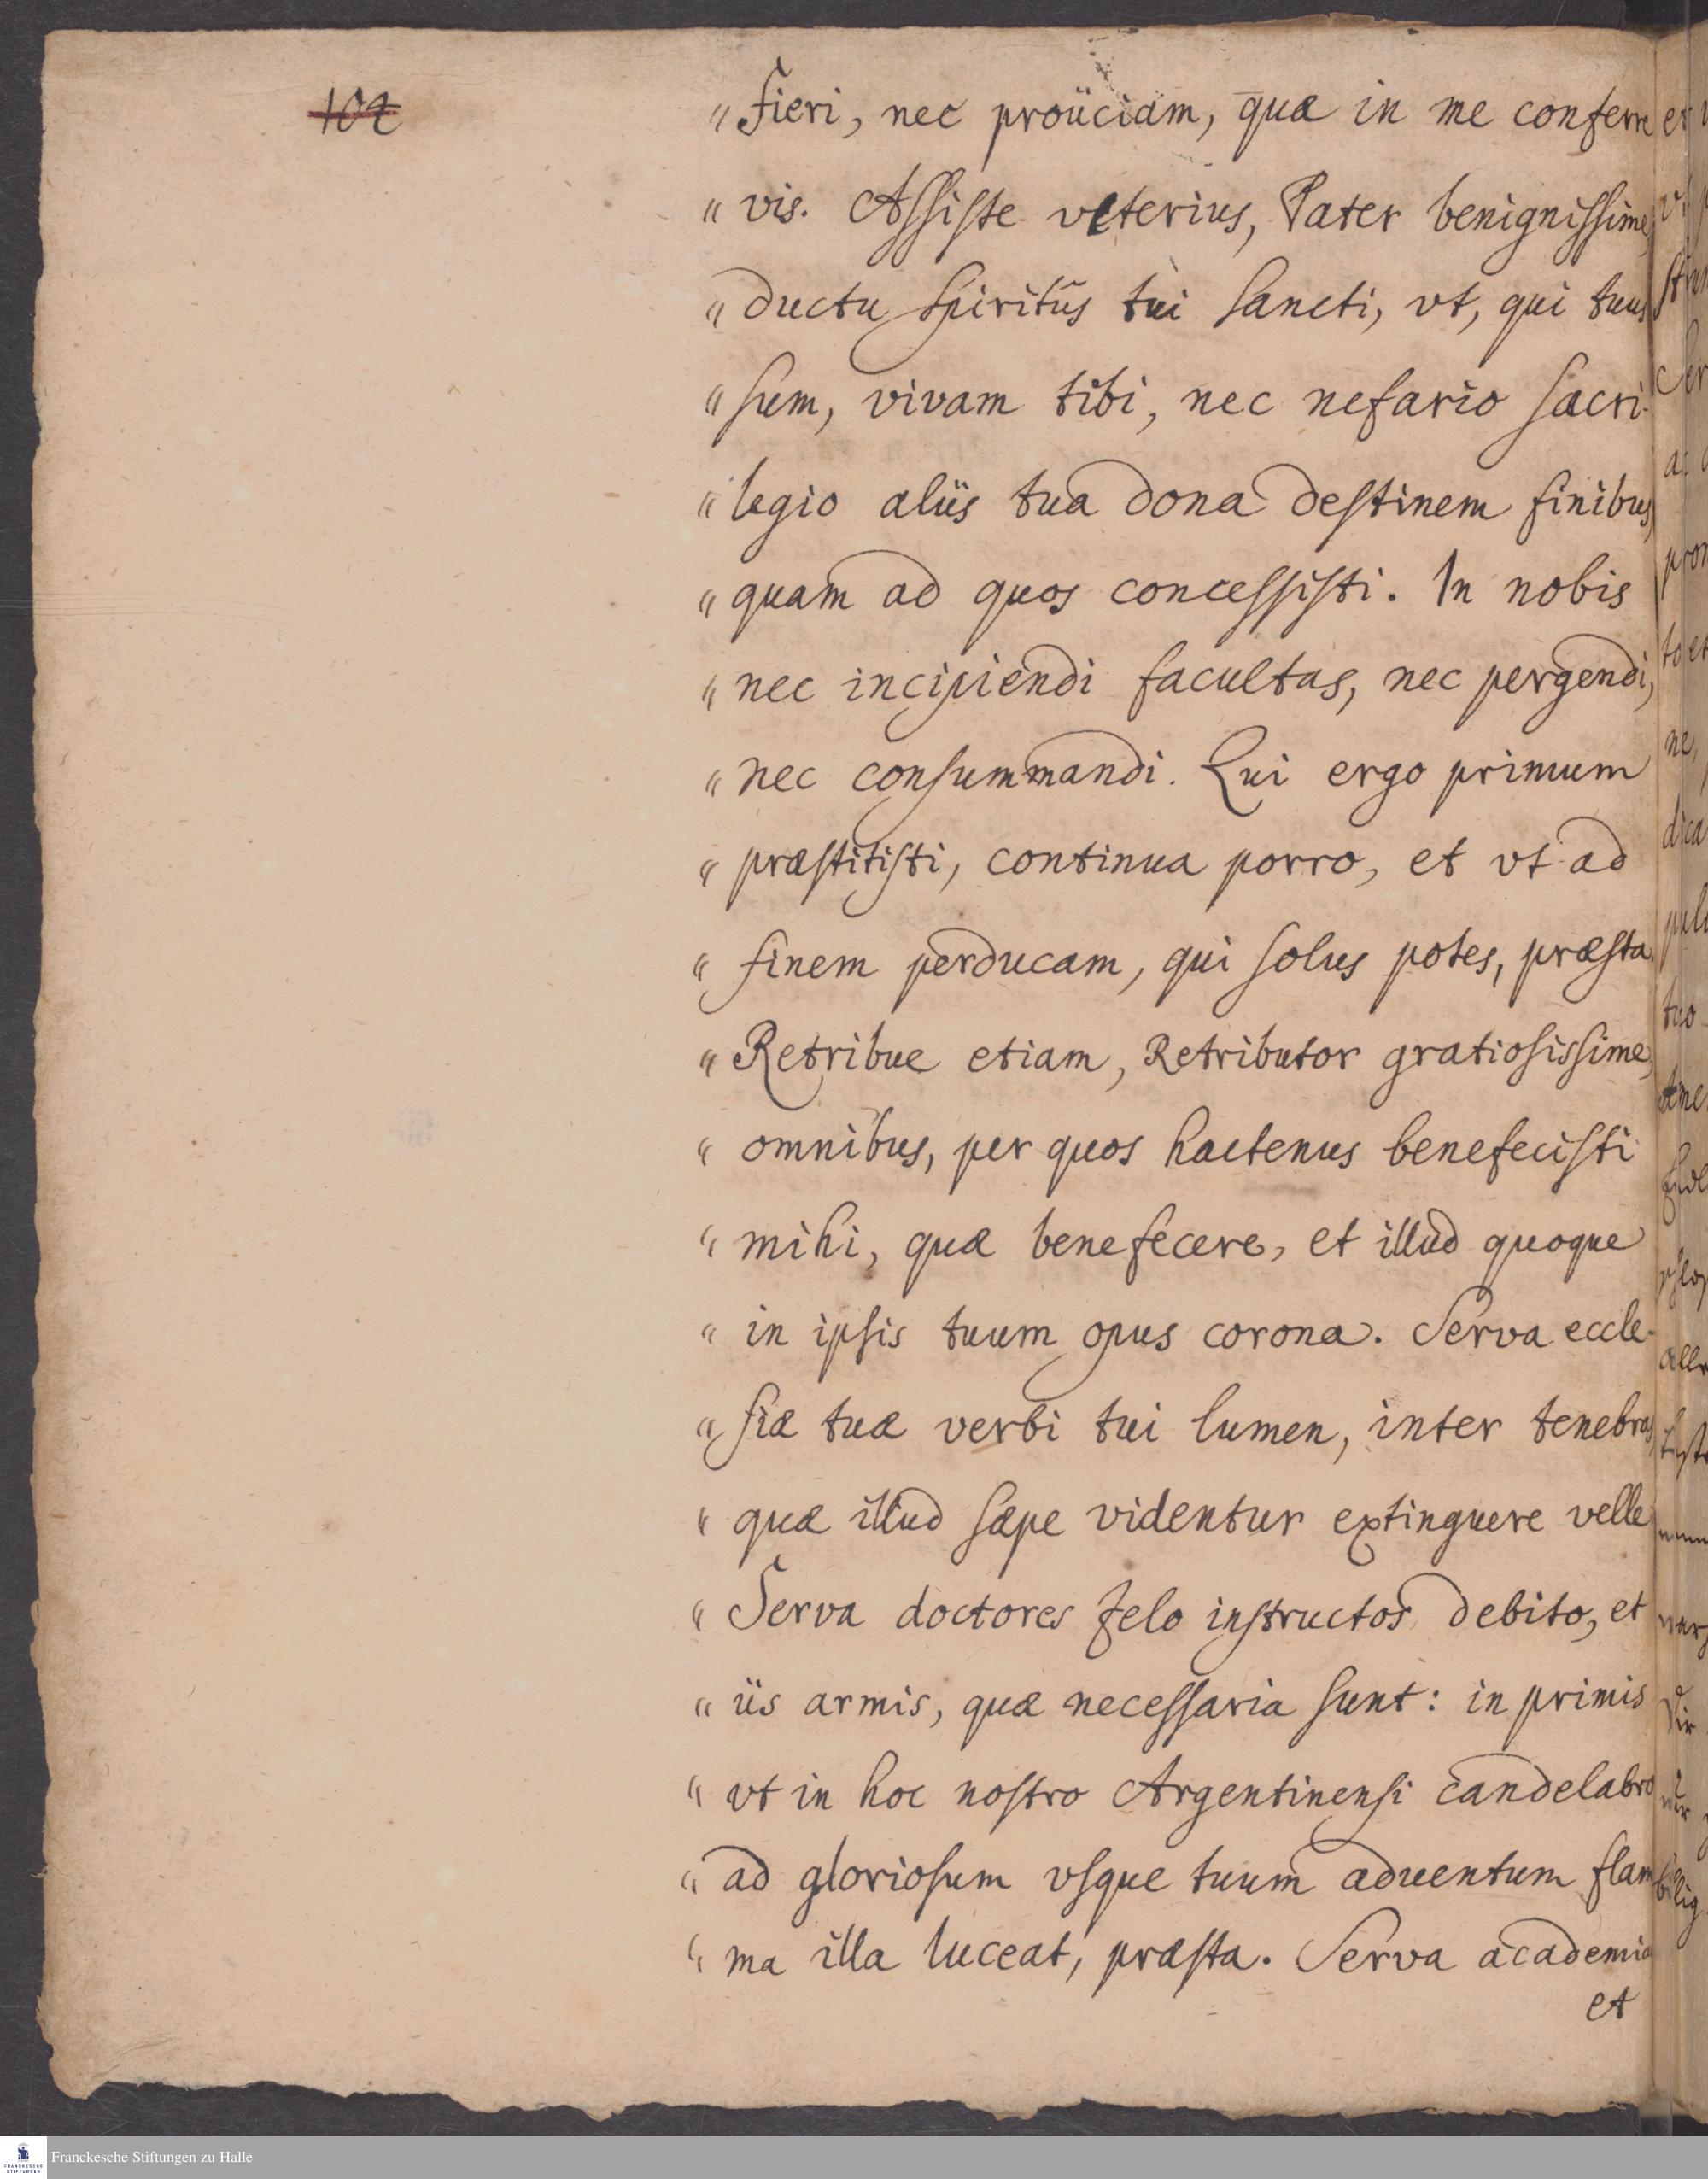 102
„ fieri, nec proüciam, quæ in me conferre
„ vis. Assiste veterius, Pater benignissime,
„ ductu Spiritûs tui Sancti, vt, qui tuus
„ sum, vivam tibi, nec nefario sacri-
„ legio aliis tua dona destinem finibus,
„ quam ad quos concessisti. In nobis
„ nec incipiendi facultas, nec pergendi,
„ nec consummandi. Qui ergo primum
„ præstitisti, continua porro, et vt ad
„ finem perducam, qui solus potes, præsta.
„ Retribue etiam, Retributor gratiosissime,
„ omnibus, per quos hactenus benefecisti
„ mihi, quæ benefecere, et illud quoque
„ in ipsis tuum opus corona. Serva eccle-
„ siæ tuæ verbi tui lumen, inter tenebras,
„ quæ illud sæpe videntur extinguere velle
„ Serva doctores zelo instructos debito, et
„ iis armis, quæ necessaria sunt: in primis
„ vt in hoc nostro Argentinensi candelabro
„ ad gloriosum vsque tuum aduentum flam
„ ma illa luceat, præsta. Serva academia
et
Franckesche Stiftungen zu Halle